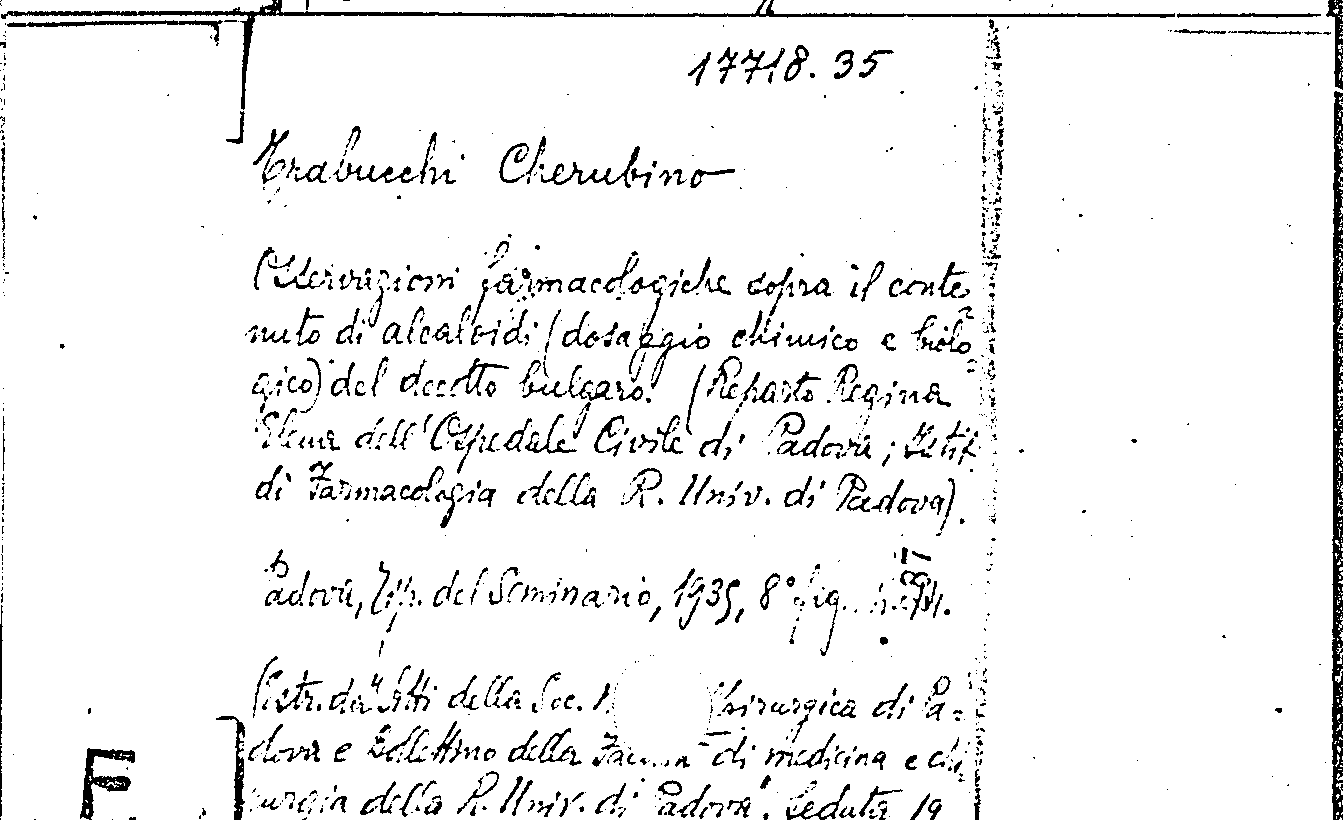 17718.35
Trabucchi Cherubino
Osservazioni farmacologiche sopra il conte-
nuto di alcaloidi (dosaggio chimico e biolo-
gico) del decotto bulgaro. (Reparto Regina
Elena dell'Ospedale Civile di Padova; Istit.
di Farmacologia della R. Univ. di Padova).
Padova, Tip. del Seminario, 1935, 8° fig.
(Estr. da "Atti della Soc. Chirurgica di Pa-
dova e Bollettino della di medicina e chi-
rurgia della R. Univ. di Padova". Seduta 19
E